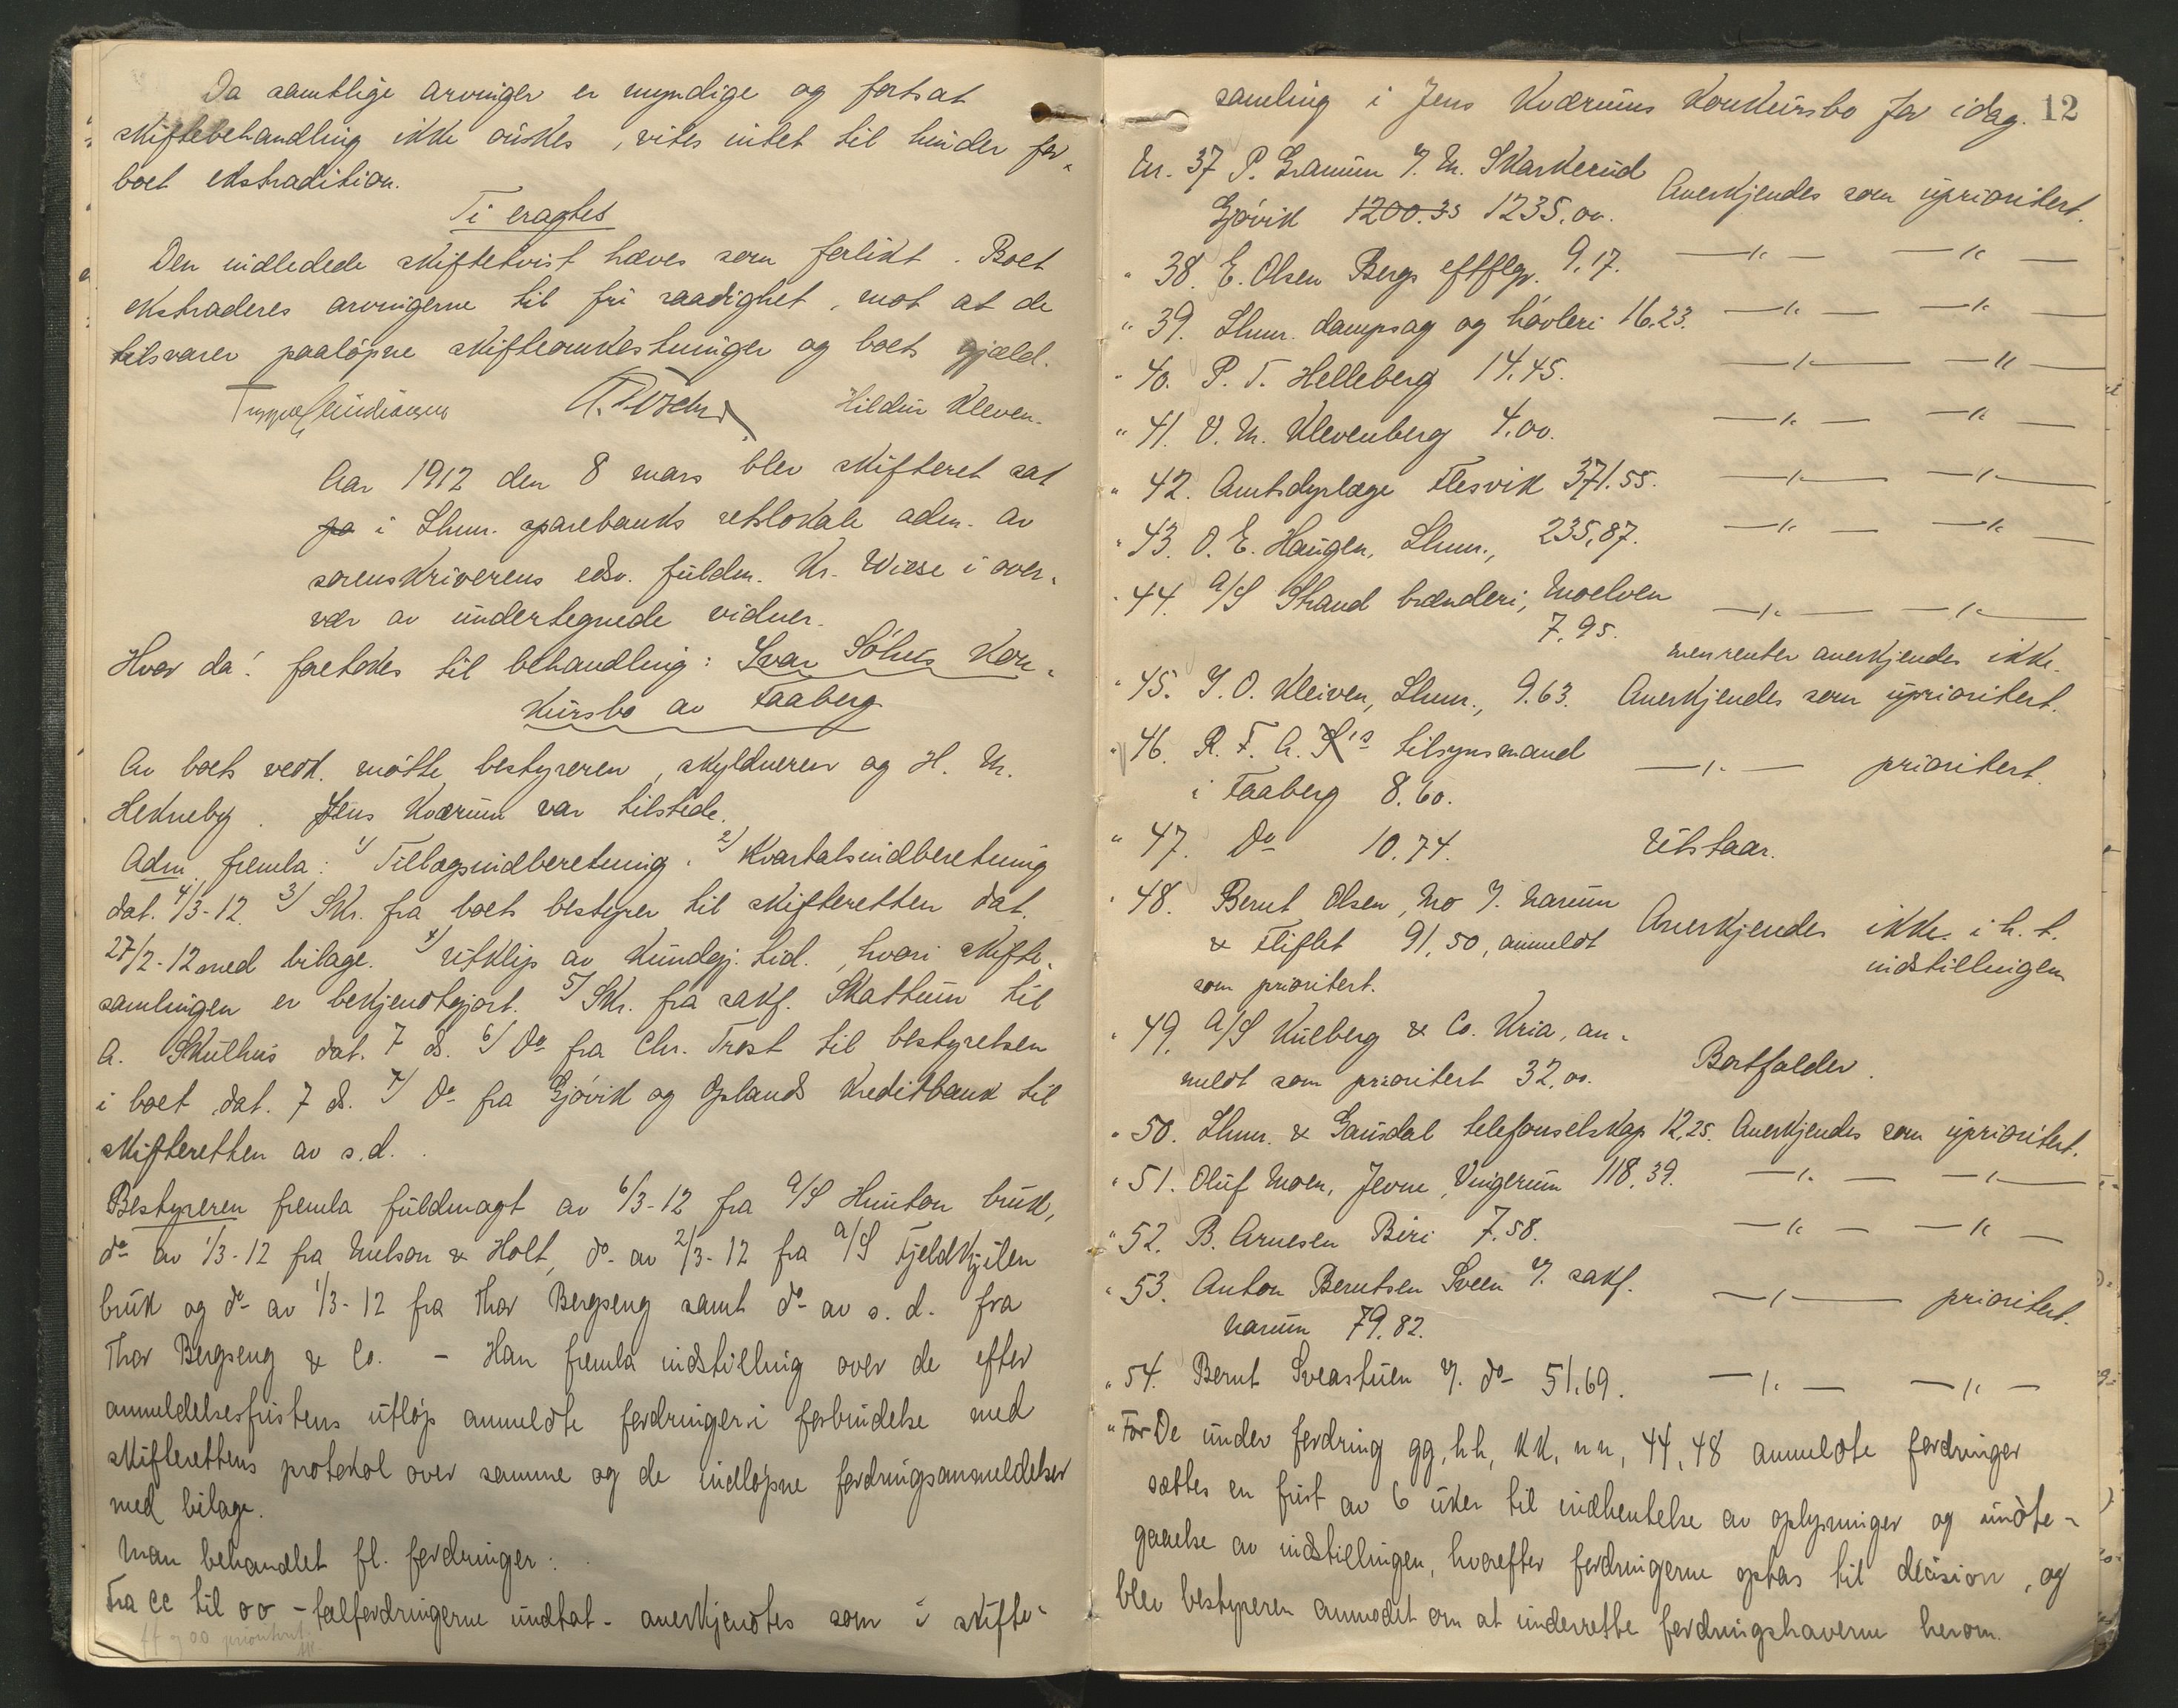 Da samtlige arvinger er myndige og fortsat
skiftebehandling ikke ønskes, vites intet til hinder for
boet ekstradition.
Ti eragtes
Den indledede skiftetvist hæves som forlikt. Boet
ekstraderes arvingerne til fri raadighet, mot at de
tilsvarer paaløpne skifteomkostninger og boets gjæld.
Hildur Kleven.
Aar 1912 den 8 mars blev skifteret sat
pa i Lhmr. sparebanks retslokale adm. av
sorenskriverens edsv. fuldm. Kr. Wiese i over-
vær av undertegnede vidner.
Hvor da! foretokes til behandling: Ivar Sølies Kon-
kursbo av Faaberg
Av boets vedk. møtte bestyreren, skyldneren og H. M.
Hekneby. Jens Kværum var tilstede.
Adm. fremla: 1) Tillægsindberetning. 2) Kvartalsindberetning
dat. 4/3-12. 3) Skr. fra boets bestyrer til skifteretten dat.
27/2-12 med bilage. 4) Utklip av Kundgj. tid., hvori skifte-
samlingen er bekjendtgjort. 5) Skr. fra sakf. Skattum til
A. Skulhus dat. 7 ds. 6) Do fra Chr. Trost til bestyrelsen
i boet dat. 7 ds. 7) Do fra Gjøvik og Oplands Kreditbank til
skifteretten av s.d.
Bestyreren fremla fuldmagt av 6/3-12 fra A/S Hunton bruk,
do av 1/3-12 fra Nielson & Holt, do av 2/3-12 fra A/S Fjeldkjilen
bruk og do av 1/3-12 fra Thor Bergseng samt do av s.d. fra
Thor Bergseng & Co. - Han fremla indstilling over de efter
anmeldelsesfristens utløp anmeldte fordringer i forbindelse med
skifterettens protokol over samme og de indløpne fordringsanmeldelser
med bilage.
Man behandlet fl. fordringer:
Fra cc til oo - fælfordringerne undtat - anerkjendtes som i skifte-
ff og oo prioritert.
12
samling i Jens Kværums Konkursbo for idag.
Nr. 37 P. Granum v. M. Skarkerud Anerkjendes som uprioritert.
Gjøvik 1200.35 1235.00.
" 38. E. Olsen Bergs eftflgr. 9.17. —"— —"—
" 39. Lhmr. dampsag og høvleri 16.23. —"— —"—
" 40. P. T. Helleberg 14.45. —"— —"—
" 41. O. M. Klevenberg 4.00. —"— —"—
" 42. Amtsdyrlæge Flesvik 371.55. —"— —"—
" 43. O. E. Haugen, Lhmr., 235,87. —"— —"—
" 44. A/S Strand brænderi, Moelven —"— —"—
7.95. men renter anerkjendes ikke.
" 45. J. O. Kleiven, Lhmr., 9.63. Anerkjendes som uprioritert.
" 46. R. F. A. S's tilsynsmand —"— prioritert.
i Faaberg 8.60.
" 47. Do 10.74. Utstaar.
" 48. Bernt Olsen, Mo v. Narum Anerkjendes ikke i h. t.
& Fliflet 91.50, anmeldt indstillingen
som prioritert.
" 49. A/S Kulberg & Co. Kria, an-
meldt som prioritert 32.00. Bortfalder.
" 50. Lhmr. & Gausdal telefonselskap 12,25. Anerkjendes som uprioritert.
" 51. Oluf Moen, Jevne, Vingerum 118.39. —"— —"—
" 52. B. Arnesen Biri 7.58. —"— —"—
" 53. Anton Berntsen Sveen v. sakf. —"— prioritert.
Narum 79.82.
" 54. Bernt Sveastuen v. do 51.69. —"— —"—
" For De under fordring gg, hh, kk, nn, 44, 48 anmeldte fordringer
sættes en frist av 6 uker til indhentelse av oplysninger og imøte-
gaaelse av indstillingen, hvorefter fordringerne optas til decision, og
blev bestyreren anmodet om at underrette fordringshaverne herom.